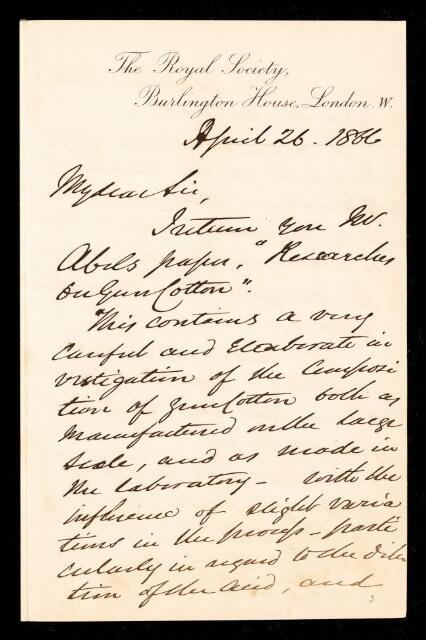 The Royal Society,
Burlington House, London. W.
April 26. 1866
My dear Sir,
I return you Mr.
Abels paper, "Researches
on Gun Cotton".
This contains a very
careful and elaborate in
vestigation of the composi
tion of gun Cotton both as
manufactured on the large
scale, and as made in
the laboratory - with the
influence of slight varia
tions in the process - parti
cularly in regard to the dilu
tion of the acid, and